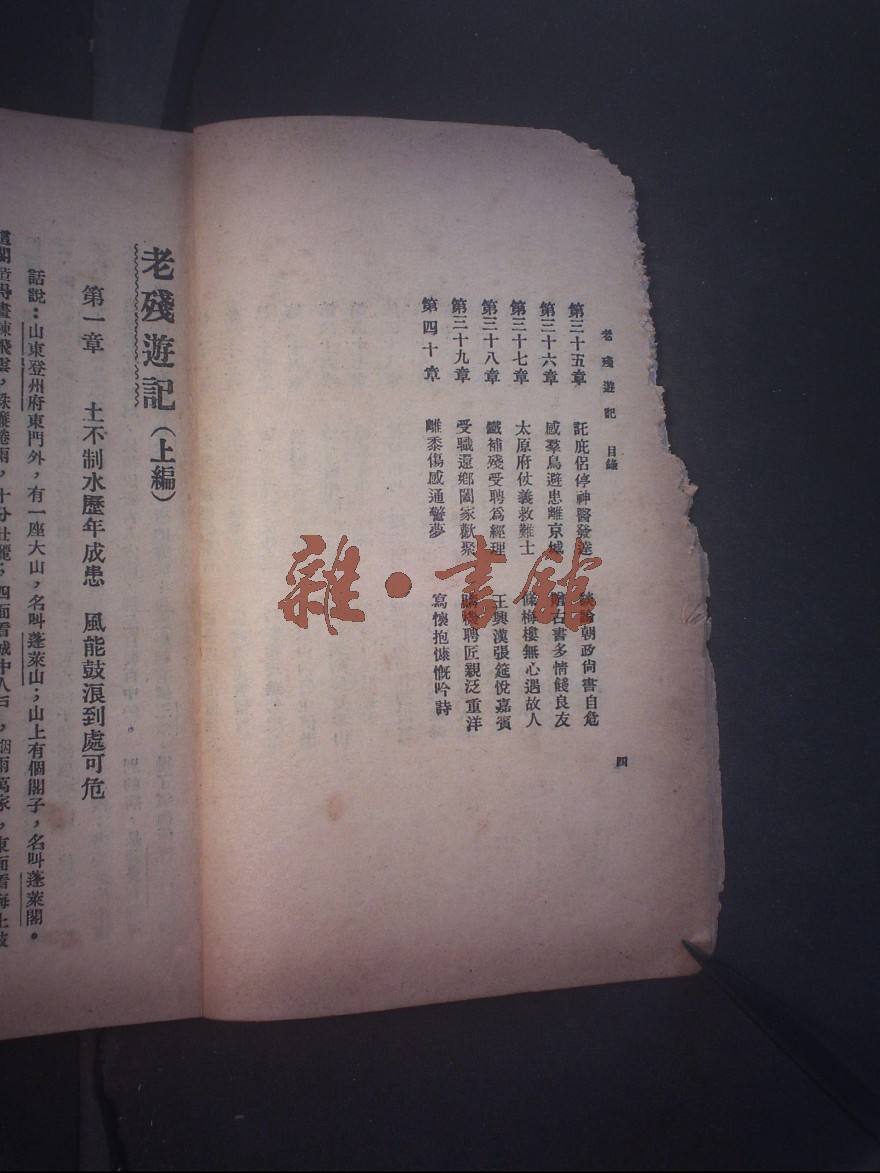 老殘遊記 目錄 四
第三十五章 託庇侶停神醫發達 談論朝政尙書自危
第三十六章 感羣鳥避患離京城 贈古書多情餞良友
第三十七章 太原府仗義救難士 條梅樓無心遇故人
第三十八章 鐵補殘受聘爲經理 王興漢張筵悅嘉賓
第三十九章 受職還鄉闔家歡聚 聘匠親泛重洋
第四十章 離黍傷感通警夢 寫懷抱慷慨吟詩
老殘遊記（上編）
第一章 土不制水歷年成患 風能鼓浪到處可危
話說：山東登州府東門外，有一座大山，名叫蓬萊山；山上有個閣子，名叫蓬萊閣。
這閣造得畫棟飛雲，珠簾捲雨，十分壯麗；四面看城中人戶，烟雨萬家，東面看海上波
雜·書館